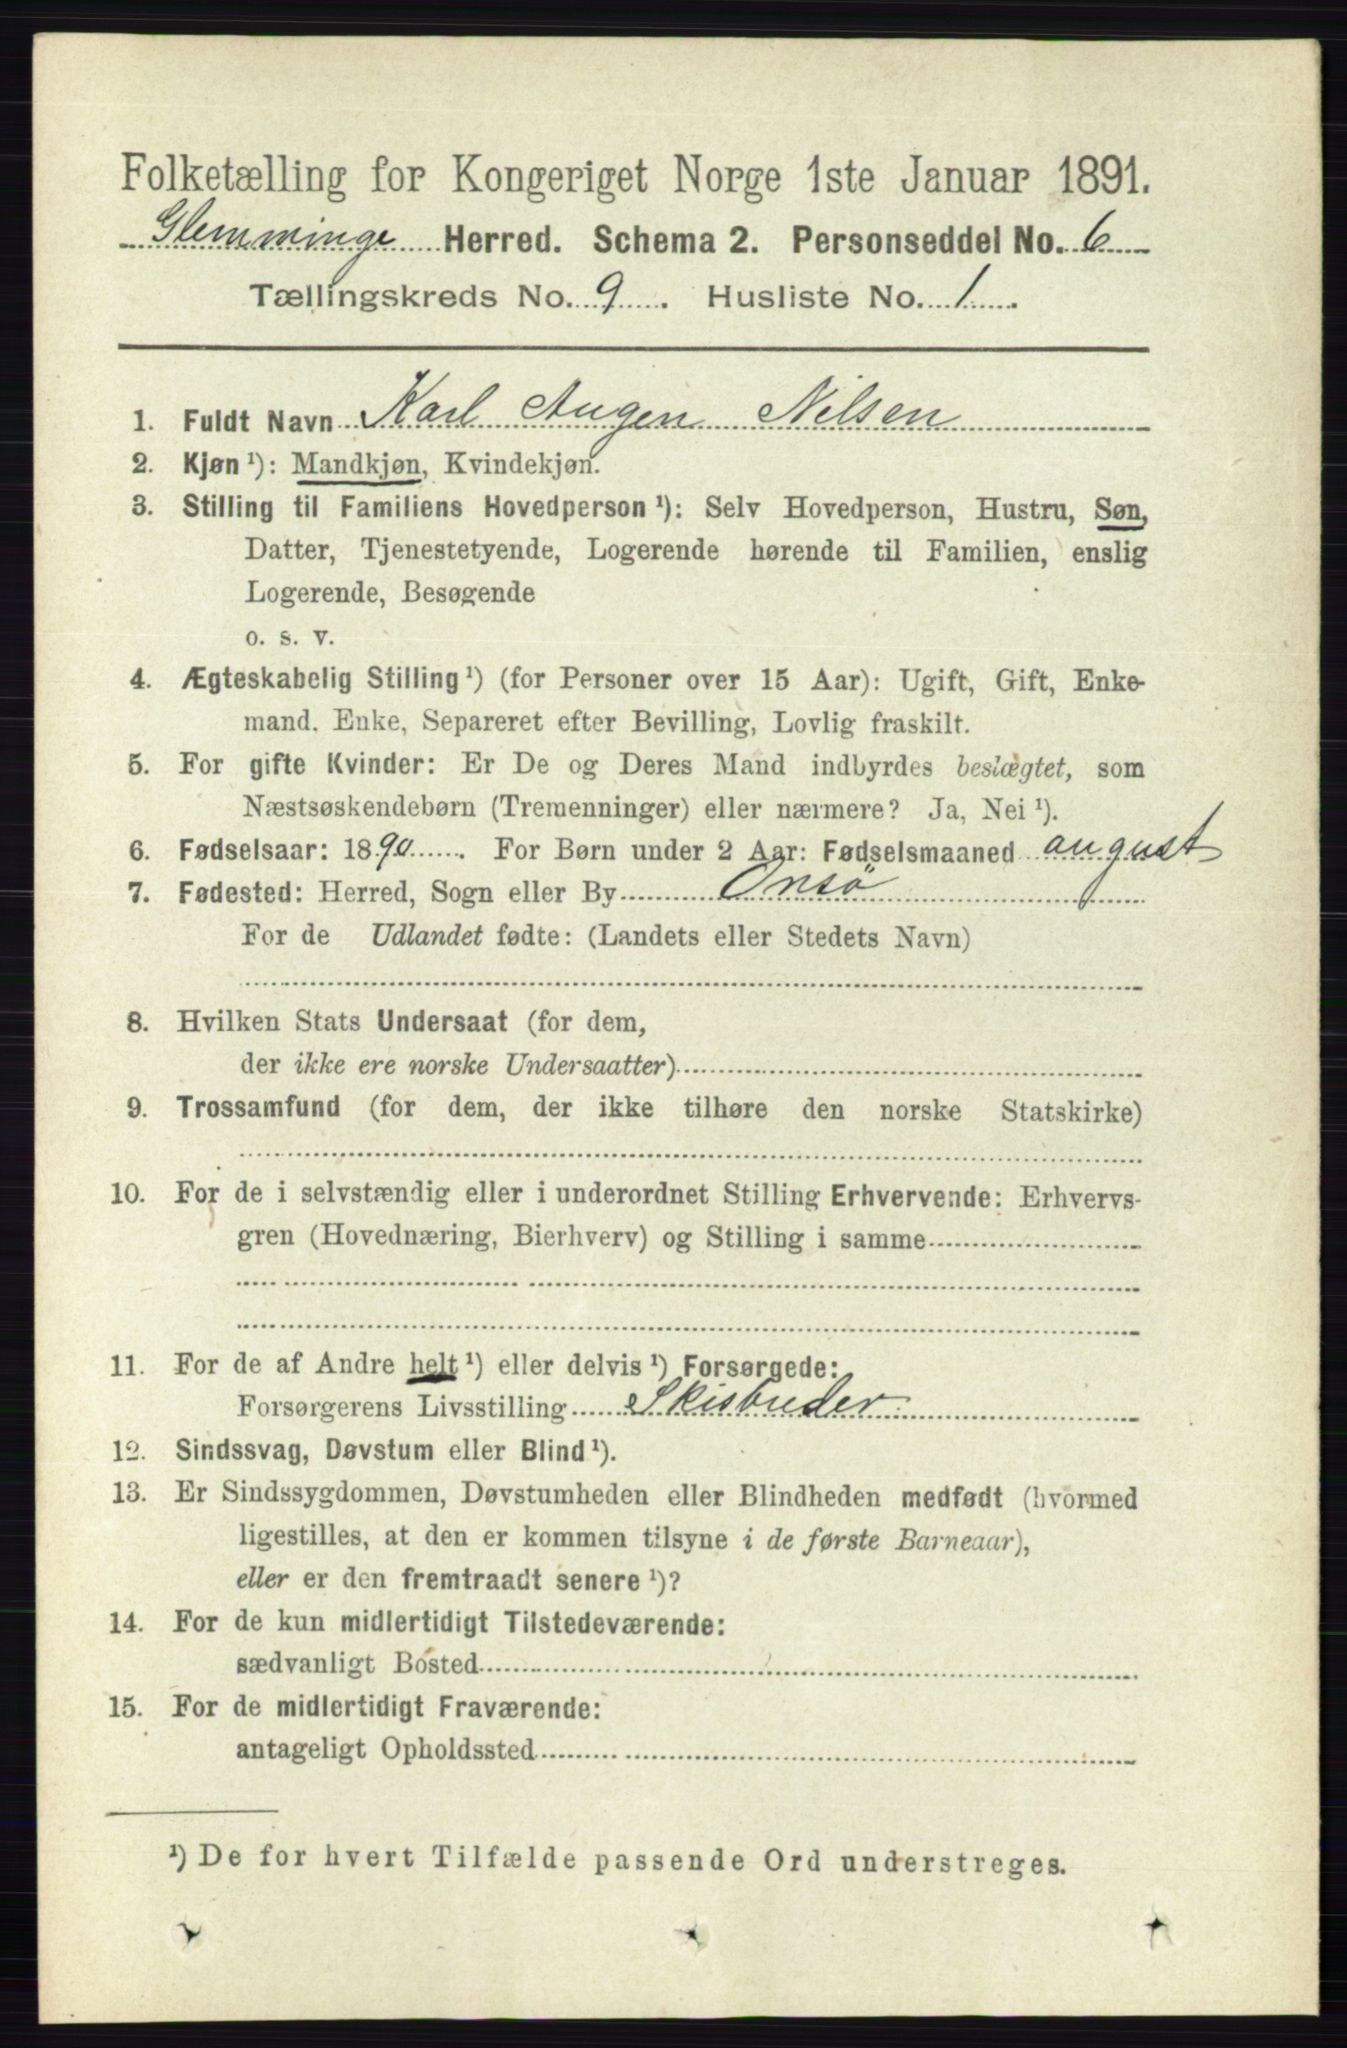 Folketælling for Kongeriget Norge 1ste Januar 1891.
Glemminge Herred. Schema 2. Personseddel No. 6
Tællingskreds No. 9. Husliste No. 1.
1. Fuldt Navn Karl Augen Nilsen
2. Kjøn ¹): Mandkjøn, Kvindekjøn.
3. Stilling til Familiens Hovedperson ¹): Selv Hovedperson, Hustru, Søn,
Datter, Tjenestetyende, Logerende hørende til Familien, enslig
Logerende, Besøgende
o. s. v.
4. Ægteskabelig Stilling ¹) (for Personer over 15 Aar): Ugift, Gift, Enke-
mand. Enke, Separeret efter Bevilling, Lovlig fraskilt.
5. For gifte Kvinder: Er De og Deres Mand indbyrdes beslægtet, som
Næstsøskendebørn (Tremenninger) eller nærmere? Ja, Nei ¹).
6. Fødselsaar: 1890. For Børn under 2 Aar: Fødselsmaaned august
7. Fødested: Herred, Sogn eller By Onsö
For de Udlandet fødte: (Landets eller Stedets Navn)
8. Hvilken Stats Undersaat (for dem,
der ikke ere norske Undersaatter)
9. Trossamfund (for dem, der ikke tilhøre den norske Statskirke)
10. For de i selvstændig eller i underordnet Stilling Erhvervende: Erhvervs-
gren (Hovednæring, Bierhverv) og Stilling i samme
11. For de af Andre helt ¹) eller delvis ¹) Forsørgede:
Forsørgerens Livsstilling Skisbuder
12. Sindssvag, Døvstum eller Blind ¹).
13. Er Sindssygdommen, Døvstumheden eller Blindheden medfødt (hvormed
ligestilles, at den er kommen tilsyne i de første Barneaar),
eller er den fremtraadt senere ¹)?
14. For de kun midlertidigt Tilstedeværende:
sædvanligt Bosted
15. For de midlertidigt Fraværende:
antageligt Opholdssted
¹) De for hvert Tilfælde passende Ord understreges.